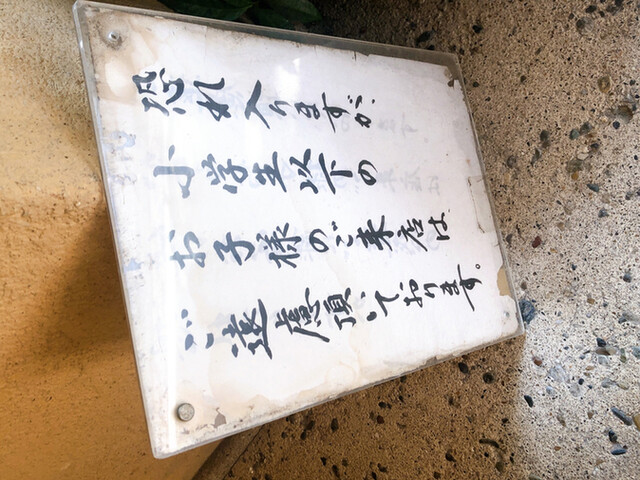 恐れ入りますが、
小学生以下の
お子様のご来店は
ご遠慮頂いております。